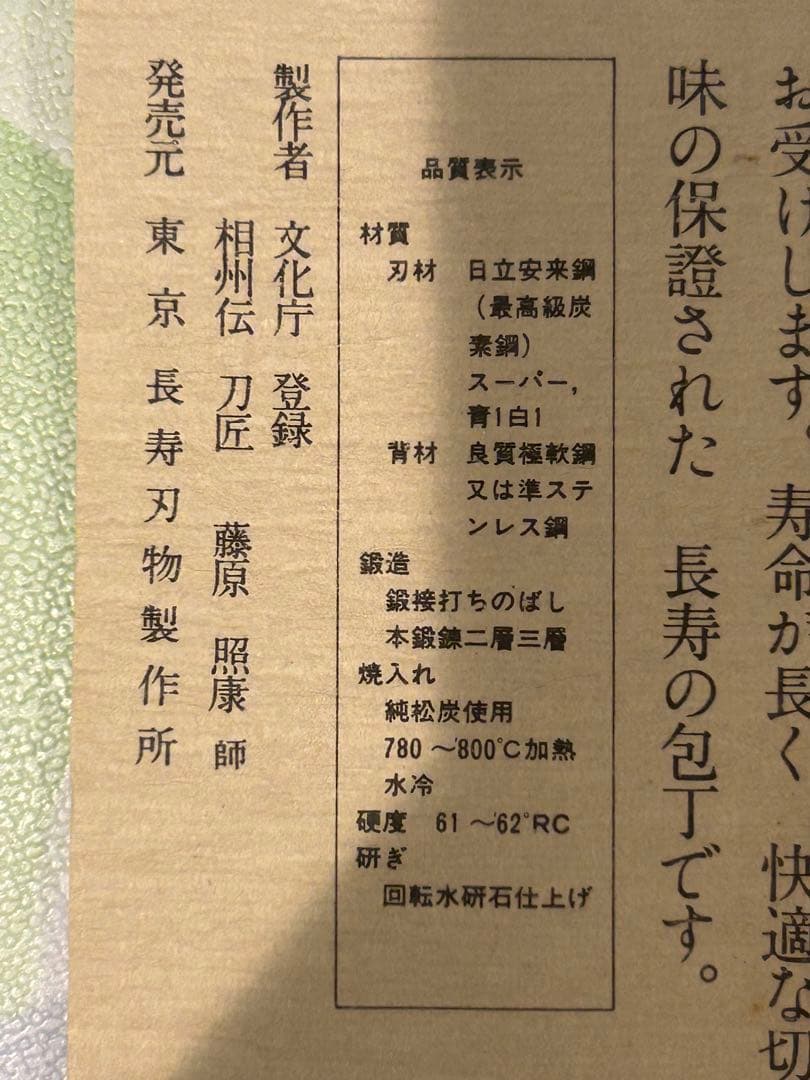 お受けします。寿命が長く 快適な切
味の保證された 長寿の包丁です。
品質表示
材質
刃材 日立安来鋼
(最高級炭
素鋼)
スーパー,
青1白1
背材 良質極軟鋼
又は準ステ
ンレス鋼
鍛造
鍛接打ちのばし
本鍛錬二層三層
焼入れ
純松炭使用
780~800℃加熱
水冷
硬度 61~62°RC
研ぎ
回転水研石仕上げ
製作者 文化庁 登録
相州伝 刀匠 藤原 照康 師
発売元 東京 長寿刃物製作所